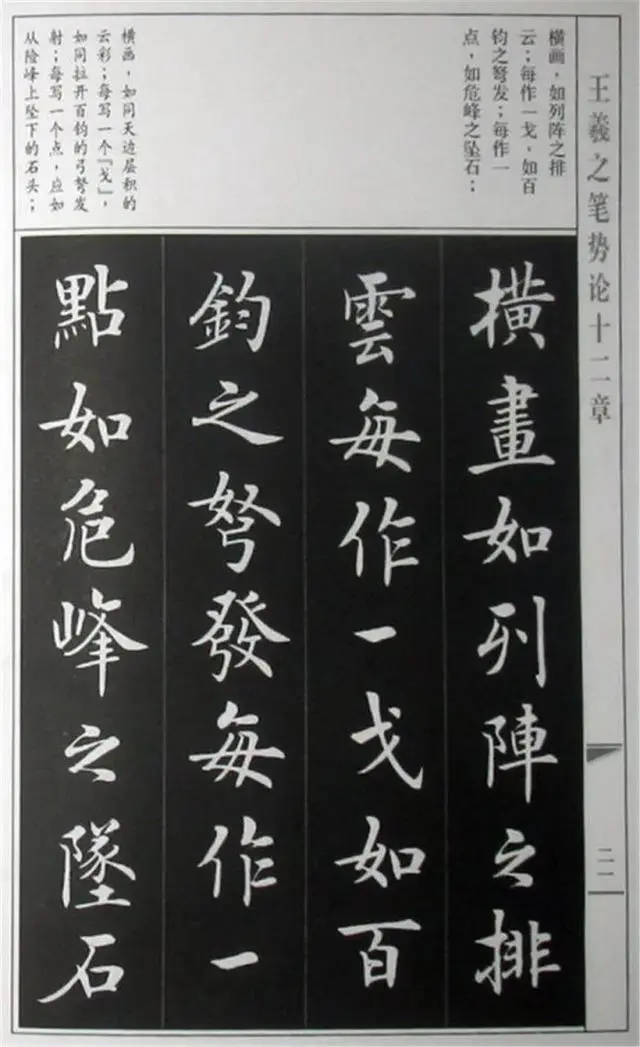 王羲之笔势论十二章
横画，如列阵之排
云；每作一戈，如百
钧之弩发；每作一
点，如危峰之坠石；
横画，如同天边层积的
云彩；每写一个『戈』，
如同拉开百钧的弓弩发
射；每写一个点，应如
从险峰上坠下的石头；
橫畫如列陣之排
雲每作一戈如百
鈞之弩發每作一
點如危峰之墜石
二一